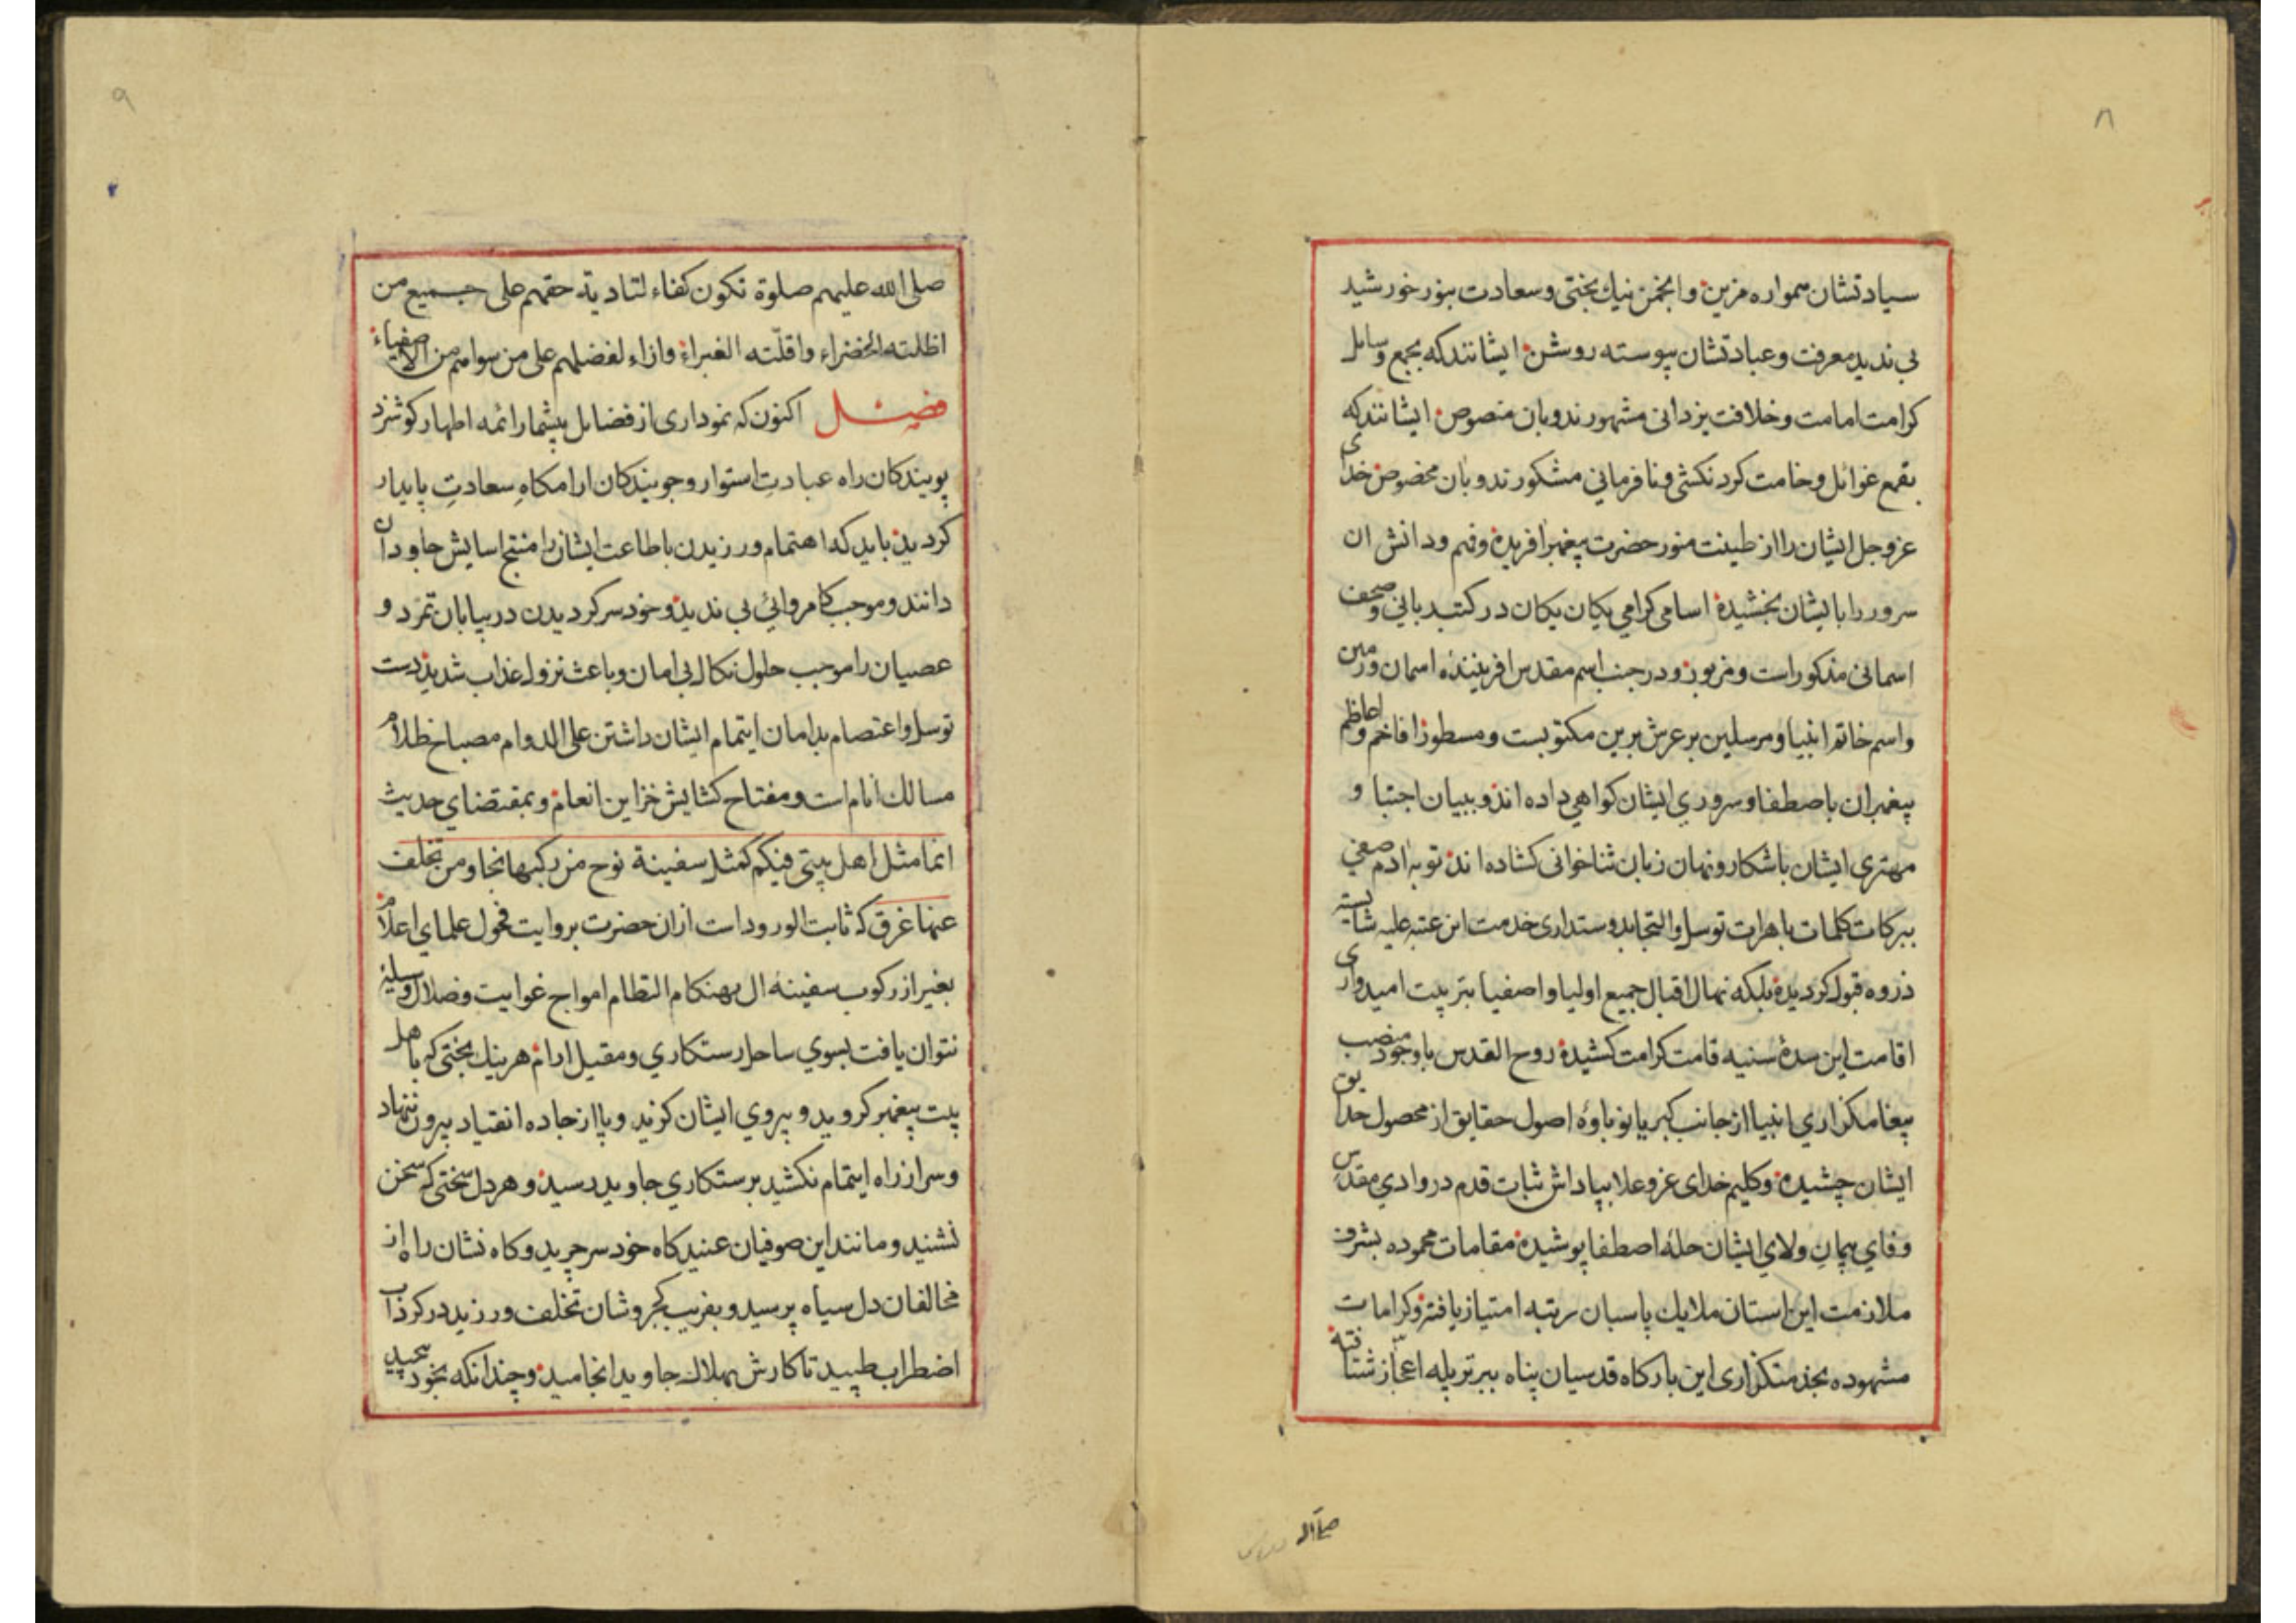 ۸
سیادتشان همواره مزین وانجمن نیك بختی وسعادت بنور خورشید
بی ندید معرفت وعبادتشان پیوسته روشن ایشانندکه بجمع وسایل
کرامت امامت وخلافت یزدانی مشهورند وبان منصوص ایشانندکه
بقمع غوائل وخامت کردنکشی ونافرمانی مشکورند وبان مخصوص خدای
عزوجل ایشان را از طینت منور حضرت پیغمبر افریده وفهم ودانش ان
سرور را بایشان بخشیده اسامی کرامی یکان یکان در کتب ربانی وصحف
اسمانی مذکور است ومزبور ودر جنب اسم مقدس افریننده اسمان وزمین
واسم خاتم انبیا ومرسلین بر عرش برین مکتوبست ومسطور افاخم واعاظم
پیغمبران باصطفا وسروری ایشان کواهی داده اند وببیان اجتبا و
مهتری ایشان باشکار ونهان زبان ثناخوانی کشاده اند توبه ادم صفی
ببرکات کلمات باهرات توسل والتجا بدوستداری خدمت این عتبه علیه شایسته
ذروه قبول کردیده بلکه نهال اقبال جمیع اولیا واصفیا بتربیت امیدواری
اقامت این سدۀ سنیه قامت کرامت کشیده روح القدس باوجود منصب
پیغامکزاری انبیا از جانب کبریا نوباوۀ اصول حقایق از محصول حدایق
ایشان چشیده وکلیم خدای عزوعلا بپاداش ثبات قدم در وادی مقدس
وفای پیمان ولای ایشان حلۀ اصطفا پوشیده مقامات محموده بشرف
ملازمت این استان ملایك پاسبان رتبه امتیاز یافته وکرامات
مشهوده بخدمتکزاری این بارکاه قدسیان پناه ببرتر پله اعجاز شتافته
صلی الله
۹
صلی الله علیهم صلوة تکون کفاء لتادیة حقهم علی جمیع من
اظلته الخضراء واقلّته الغبراء وازاء لفضلهم علی من سواهم من الاصفیاء
فصل اکنون که نموداری از فضایل بیشمار ائمه اطهار کوشزد
پویندکان راه عبادتِ استوار وجویندکان ارامکاهِ سعادتِ پایدار
کردید باید که اهتمام ورزیدن باطاعت ایشان را منتج اسایش جاودان
دانند وموجب کامروائی بی ندید وخودسر کردیدن در بیابان تمرّد و
عصیان را موجب حلول نکال بی امان وباعث نزول عذاب شدید دست
توسل واعتصام بدامان ایتمام ایشان داشتن علی الدوام مصباح ظلام
مسالك انام است ومفتاح کشایش خزاین انعام وبمقتضای حدیث
انما مثل اهل بیتی فیکم کمثل سفینة نوح من رکبها نجا ومن تخلف
عنها غرق که ثابت الورود است از ان حضرت بروایت فحول علمای اعلام
بغیر از رکوب سفینۀ ال بهنکام التطام امواج غوایت وضلال وسیله
نتوان یافت بسوی ساحل رستکاری ومقیل ارام هر نیك بختی که باهل
بیت پیغمبر کروید و پیروی ایشان کزید وپا از جاده انقیاد بیرون ننهاد
وسر از راه ایتمام نکشید برستکاری جاوید رسید وهر دل سختی که سخن
نشنید ومانند این صوفیان عنید کاه خودسر چرید وکاه نشان راه از
مخالفان دل سیاه پرسید وبفریب کجروشان تخلف ورزید در کرداب
اضطراب طپید تا کارش بهلاك جاوید انجامید وچندانکه بخود پیچید